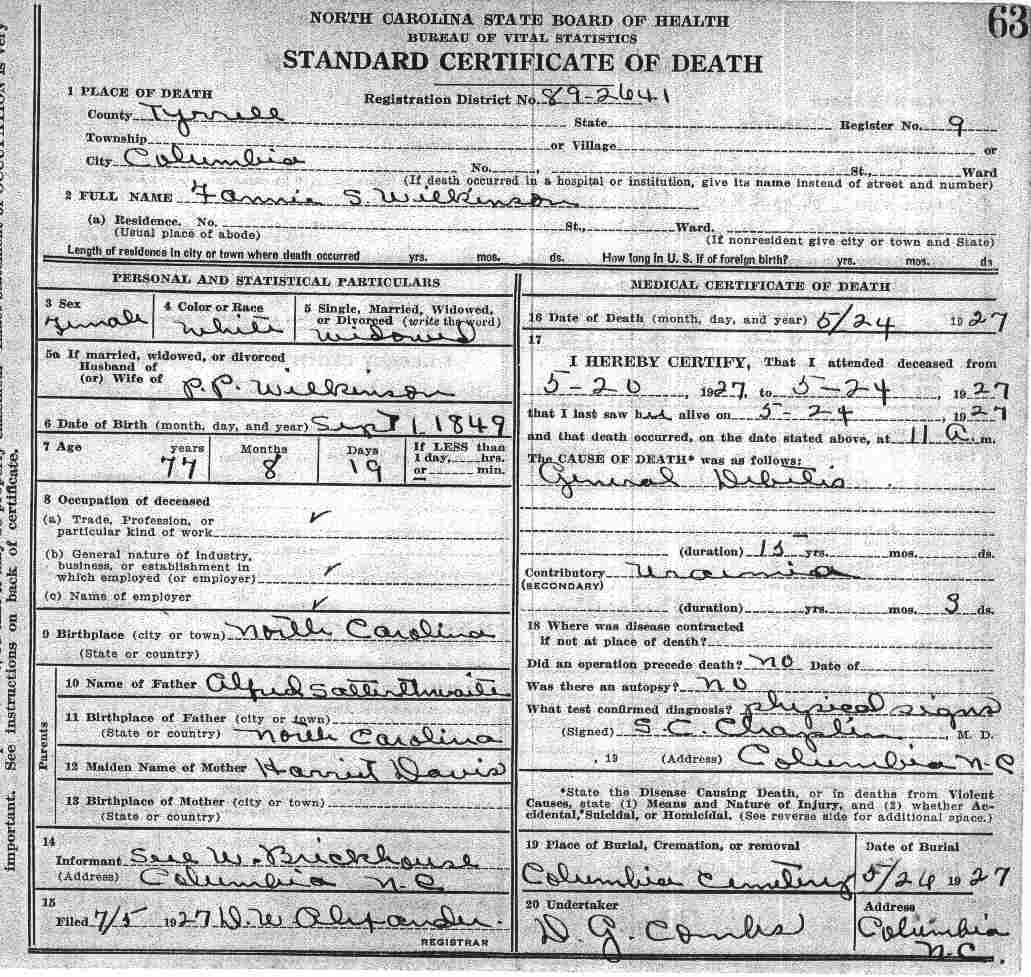 63
NORTH CAROLINA STATE BOARD OF HEALTH
BUREAU OF VITAL STATISTICS
STANDARD CERTIFICATE OF DEATH
1 PLACE OF DEATH
Registration District No. 89-2641
County Tyrrell State Register No. 9
Township or Village or
City Columbia No. St., Ward
(If death occurred in a hospital or institution, give its name instead of street and number)
2 FULL NAME Fannie S. Wilkinson
(a) Residence. No. St., Ward.
(Usual place of abode) (If nonresident give city or town and State)
Length of residence in city or town where death occurred yrs. mos. ds. How long in U. S. if of foreign birth? yrs. mos. ds
PERSONAL AND STATISTICAL PARTICULARS
3 Sex
Female
4 Color or Race
White
5 Single, Married, Widowed,
or Divorced (write the word)
Widowed
5a If married, widowed, or divorced
Husband of
(or) Wife of P.P. Wilkinson
6 Date of Birth (month, day, and year) Sept 1, 1849
7 Age years Months Days If LESS than
1 day, hrs.
or min.
77 8 19
8 Occupation of deceased
(a) Trade, Profession, or
particular kind of work
(b) General nature of industry,
business, or establishment in
which employed (or employer)
(c) Name of employer
9 Birthplace (city or town) North Carolina
(State or country)
Parents
10 Name of Father Alfred Satterthwaite
11 Birthplace of Father (city or town)
(State or country) North Carolina
12 Maiden Name of Mother Harriet Davis
13 Birthplace of Mother (city or town)
(State or country)
14
Informant W. Brickhouse
(Address) Columbia N C
15
Filed 7/5 1927 D. W. Alexander.
REGISTRAR
MEDICAL CERTIFICATE OF DEATH
16 Date of Death (month, day, and year) 5/24 1927
17
I HEREBY CERTIFY, That I attended deceased from
5-20, 1927, to 5-24, 1927
that I last saw her alive on 5-24, 1927
and that death occurred, on the date stated above, at 11 a. m.
The CAUSE OF DEATH* was as follows:
General
(duration) 15 yrs. mos. ds.
Contributory Uraemia
(SECONDARY)
(duration) yrs. mos. 3 ds.
18 Where was disease contracted
if not at place of death?
Did an operation precede death? no Date of
Was there an autopsy? no
What test confirmed diagnosis? physical signs
(Signed) S. C. Chaplin, M. D.
, 19 (Address) Columbia N C
*State the Disease Causing Death, or in deaths from Violent
Causes, state (1) Means and Nature of Injury, and (2) whether Ac-
cidental, Suicidal, or Homicidal. (See reverse side for additional space.)
19 Place of Burial, Cremation, or removal
Columbia Cemetery
Date of Burial
5/26 1927
20 Undertaker
D. G. Combs
Address
Columbia
N.C.
important. See instructions on back of certificate.